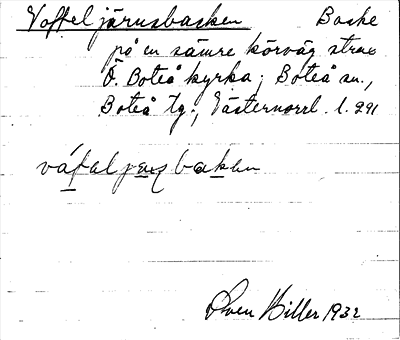 Voffeljärnsbacken Backe
på en sämre körväg strax
Ö. Boteå kyrka; Boteå sn.,
Boteå tg., Västernorrl. l. 291
váfaljensbakən
Sven Hiller 1932